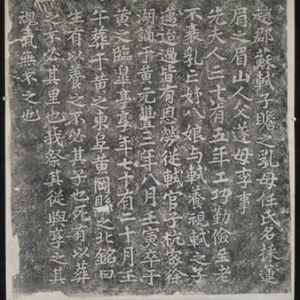 趙郡蘇軾子瞻之乳母任氏名採蓮
眉之眉山人父遂母李氏事
先夫人三十有五年工巧勤儉至老
不衰乳亡姊八娘與軾養視軾之子
邁迨過皆有恩勞從軾官于杭密徐
湖謫于黃元豐三年八月壬寅卒于
黃之臨皋亭享年七十有二十月壬
午葬于黃之東阜黃岡縣之北銘曰
生有以養之不必其子也死有以葬
之不必其里也我祭其從與享之其
魂氣無不之也